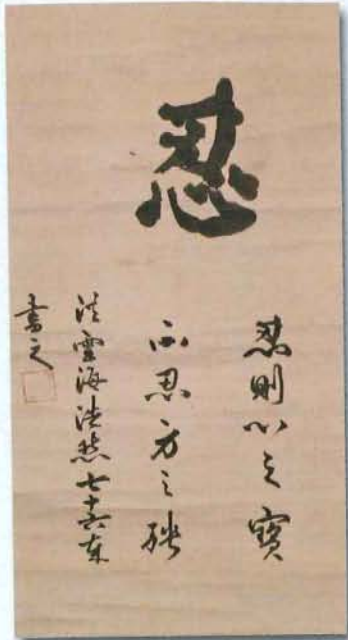 忍
忍則心之寶
不忍身之殃
雲海然七十六
書之